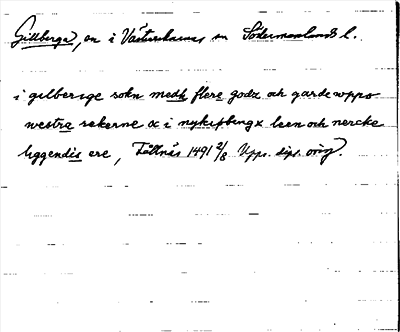 Gillberga, sn i Västerrekarne sn Södermanlands l.
i gilberge sokn medh flere godz och garde vppo
westra rekerne oc i nykøpbings leen och nercke
liggendis ere, Fållnäs 1491 2/8 Upps. dipl. orig.